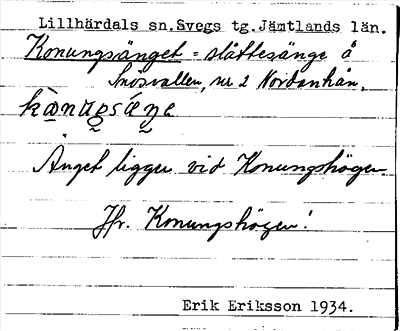 Lillhärdals sn. Svegs tg. Jämtlands län.
Konungsänget = slåttesänge å
Snösvallen, nr 2 Nordanhån.
Änget ligger vid Konungshögen
Jfr. Konungshögen!
Erik Eriksson 1934.